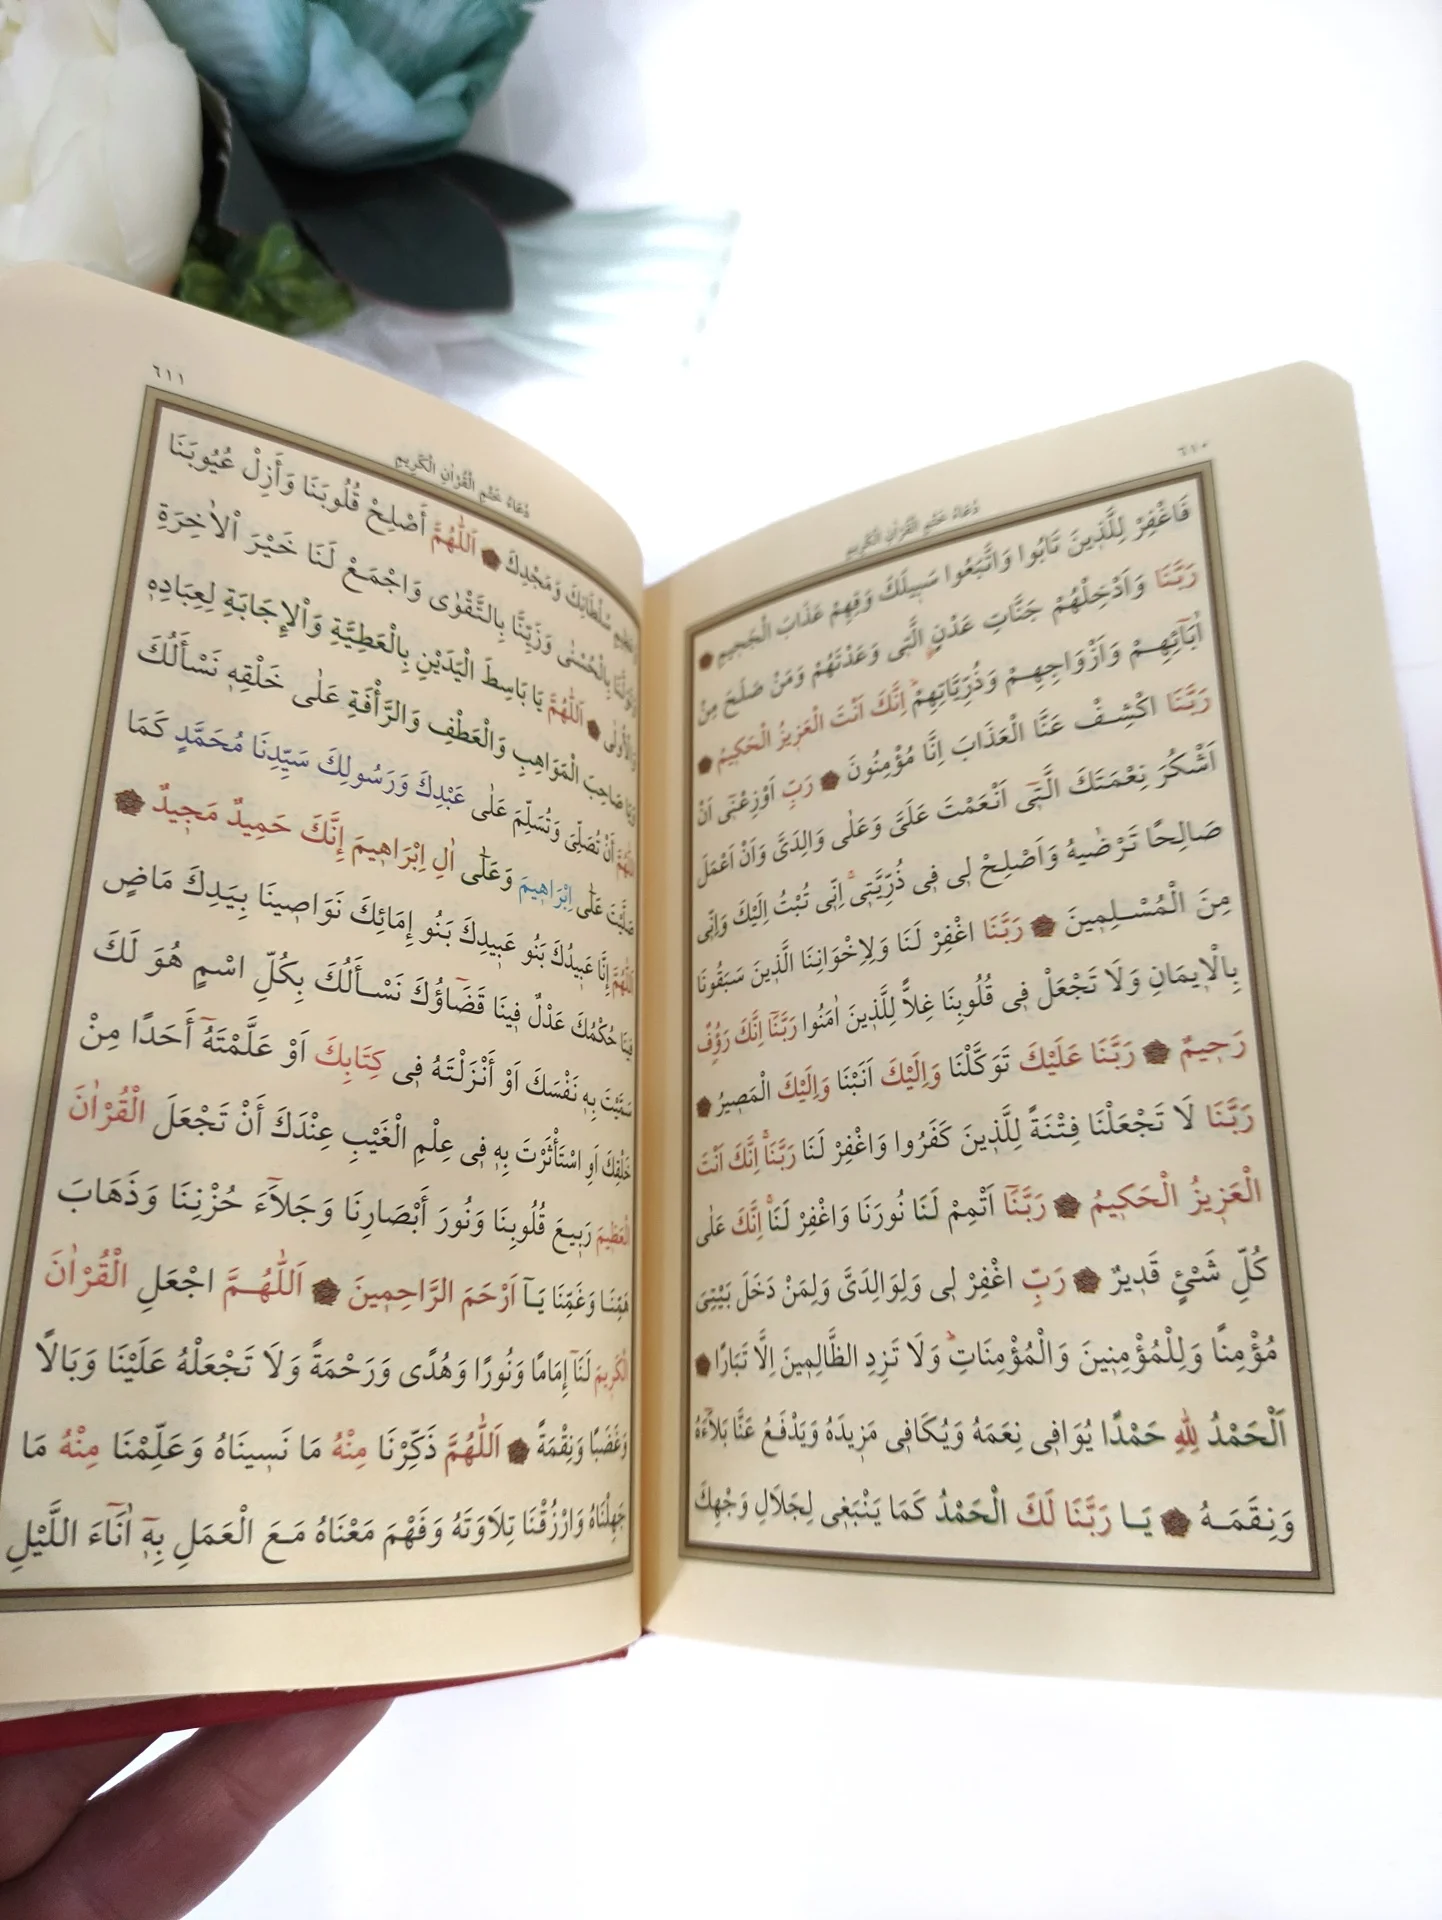 ٦١٠
دُعَاءُ خَتْمِ الْقُرْاٰنِ الْكَرِيمِ
فَاغْفِرْ لِلَّذ۪ينَ تَابُوا وَاتَّبَعُوا سَب۪يلَكَ وَقِهِمْ عَذَابَ الْجَح۪يمِ
رَبَّنَا وَاَدْخِلْهُمْ جَنَّاتِ عَدْنٍ الَّت۪ى وَعَدْتَهُمْ وَمَنْ صَلَحَ مِنْ
اٰبَآئِهِمْ وَاَزْوَاجِهِمْ وَذُرِّيَّاتِهِمْ اِنَّكَ اَنْتَ الْعَز۪يزُ الْحَك۪يمُ
رَبَّنَا اكْشِفْ عَنَّا الْعَذَابَ اِنَّا مُؤْمِنُونَ رَبِّ اَوْزِعْن۪ٓى اَنْ
اَشْكُرَ نِعْمَتَكَ الَّت۪ٓى اَنْعَمْتَ عَلَىَّ وَعَلٰى وَالِدَىَّ وَاَنْ اَعْمَلَ
صَالِحًا تَرْضٰيهُ وَاَصْلِحْ ل۪ى ف۪ى ذُرِّيَّت۪ى اِنّ۪ى تُبْتُ اِلَيْكَ وَاِنّ۪ى
مِنَ الْمُسْلِم۪ينَ رَبَّنَا اغْفِرْ لَنَا وَلِاِخْوَانِنَا الَّذ۪ينَ سَبَقُونَا
بِالْا۪يمَانِ وَلَا تَجْعَلْ ف۪ى قُلُوبِنَا غِلًّا لِلَّذ۪ينَ اٰمَنُوا رَبَّنَٓا اِنَّكَ رَؤُفٌ
رَح۪يمٌ رَبَّنَا عَلَيْكَ تَوَكَّلْنَا وَاِلَيْكَ اَنَبْنَا وَاِلَيْكَ الْمَص۪يرُ
رَبَّنَا لَا تَجْعَلْنَا فِتْنَةً لِلَّذ۪ينَ كَفَرُوا وَاغْفِرْ لَنَا رَبَّنَا اِنَّكَ اَنْتَ
الْعَز۪يزُ الْحَك۪يمُ رَبَّنَٓا اَتْمِمْ لَنَا نُورَنَا وَاغْفِرْ لَنَا اِنَّكَ عَلٰى
كُلِّ شَىْءٍ قَد۪يرٌ رَبِّ اغْفِرْ ل۪ى وَلِوَالِدَىَّ وَلِمَنْ دَخَلَ بَيْتِىَ
مُؤْمِنًا وَلِلْمُؤْمِن۪ينَ وَالْمُؤْمِنَاتِ وَلَا تَزِدِ الظَّالِم۪ينَ اِلَّا تَبَارًا
اَلْحَمْدُ لِلّٰهِ حَمْدًا يُوَاف۪ى نِعَمَهُ وَيُكَاف۪ى مَز۪يدَهُ وَيَدْفَعُ عَنَّا بَلَآءَهُ
وَنِقَمَهُ يَا رَبَّنَا لَكَ الْحَمْدُ كَمَا يَنْبَغ۪ى لِجَلَالِ وَجْهِكَ
٦١١
دُعَاءُ خَتْمِ الْقُرْاٰنِ الْكَرِيمِ
سُلْطَانِكَ وَمَجْدِكَ اَللّٰهُمَّ أَصْلِحْ قُلُوبَنَا وَأَزِلْ عُيُوبَنَا
وَتَوَلَّنَا بِالْحُسْنٰى وَزَيِّنَّا بِالتَّقْوٰى وَاجْمَعْ لَنَا خَيْرَ اْلاٰخِرَةِ
وَالْأُولٰى اَللّٰهُمَّ يَا بَاسِطَ الْيَدَيْنِ بِالْعَطِيَّةِ وَاْلإِجَابَةِ لِعِبَادِه۪
صَاحِبَ الْمَوَاهِبِ وَالْعَطْفِ وَالرَّأْفَةِ عَلٰى خَلْقِه۪ نَسْأَلُكَ
اَللّٰهُمَّ أَنْ تُصَلِّىَ وَتُسَلِّمَ عَلٰى عَبْدِكَ وَرَسُولِكَ سَيِّدِنَا مُحَمَّدٍ كَمَا
صَلَّيْتَ عَلٰٓى اِبْرَاه۪يمَ وَعَلٰٓى اٰلِ اِبْرَاه۪يمَ إِنَّكَ حَم۪يدٌ مَج۪يدٌ
اَللّٰهُمَّ إِنَّا عَب۪يدُكَ بَنُو عَب۪يدِكَ بَنُو إِمَائِكَ نَوَاص۪ينَا بِيَدِكَ مَاضٍ
ف۪ينَا حُكْمُكَ عَدْلٌ ف۪ينَا قَضَاؤُكَ نَسْأَلُكَ بِكُلِّ اسْمٍ هُوَ لَكَ
سَمَّيْتَ بِه۪ نَفْسَكَ اَوْ أَنْزَلْتَهُ ف۪ى كِتَابِكَ اَوْ عَلَّمْتَهُٓ أَحَدًا مِنْ
خَلْقِكَ اَوِ اسْتَأْثَرْتَ بِه۪ ف۪ى عِلْمِ الْغَيْبِ عِنْدَكَ أَنْ تَجْعَلَ الْقُرْاٰنَ
الْعَظ۪يمَ رَب۪يعَ قُلُوبِنَا وَنُورَ أَبْصَارِنَا وَجَلَآءَ حُزْنِنَا وَذَهَابَ
هَمِّنَا وَغَمِّنَا يَآ اَرْحَمَ الرَّاحِم۪ينَ اَللّٰهُمَّ اجْعَلِ الْقُرْاٰنَ
الْكَر۪يمَ لَنَآ إِمَامًا وَنُورًا وَهُدًى وَرَحْمَةً وَلَا تَجْعَلْهُ عَلَيْنَا وَبَالًا
وَغَضَبًا وَنِقْمَةً اَللّٰهُمَّ ذَكِّرْنَا مِنْهُ مَا نَس۪ينَاهُ وَعَلِّمْنَا مِنْهُ مَا
جَهِلْنَاهُ وَارْزُقْنَا تِلَاوَتَهُ وَفَهْمَ مَعْنَاهُ مَعَ الْعَمَلِ بِه۪ٓ اٰنَآءَ اللَّيْلِ